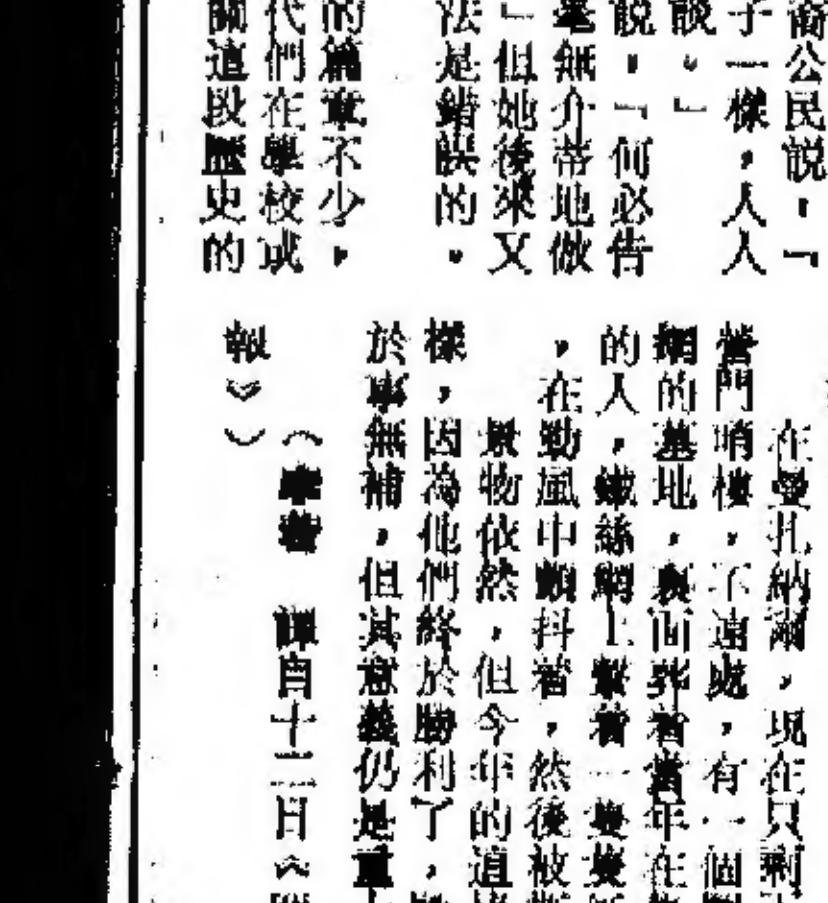 裔公民說，「
子一樣，人人
談。」
說，「何必告
毫無介蒂地做
」但她後來又
法是錯誤的。
的篇章不少，
代們在學校或
師這段歷史的
在曼扎納爾，現在只剩
營門哨樓，不遠處，有一個
的墓地，裏面葬著當年在
的人，鐵絲網上繫著一雙雙
，在勁風中顫抖着，然後被
景物依然，但今年的道
樣，因為他們終於勝利了，
於事無補，但其意義仍是重
（ 譯自十二日《
報》）